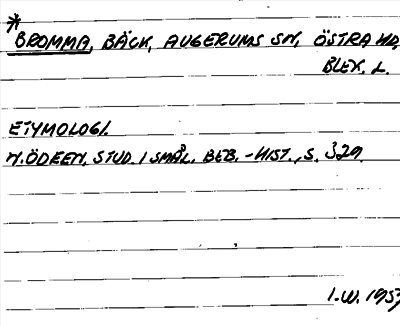 *
BROMMA, BÄCK, AUGERUMS SN, ÖSTRA HD,
BLEK. L.
ETYMOLOGI.
N. ÖDEEN, STUD. I SMÅL. BEB.-HIST., S. 329.
I.W. 1957